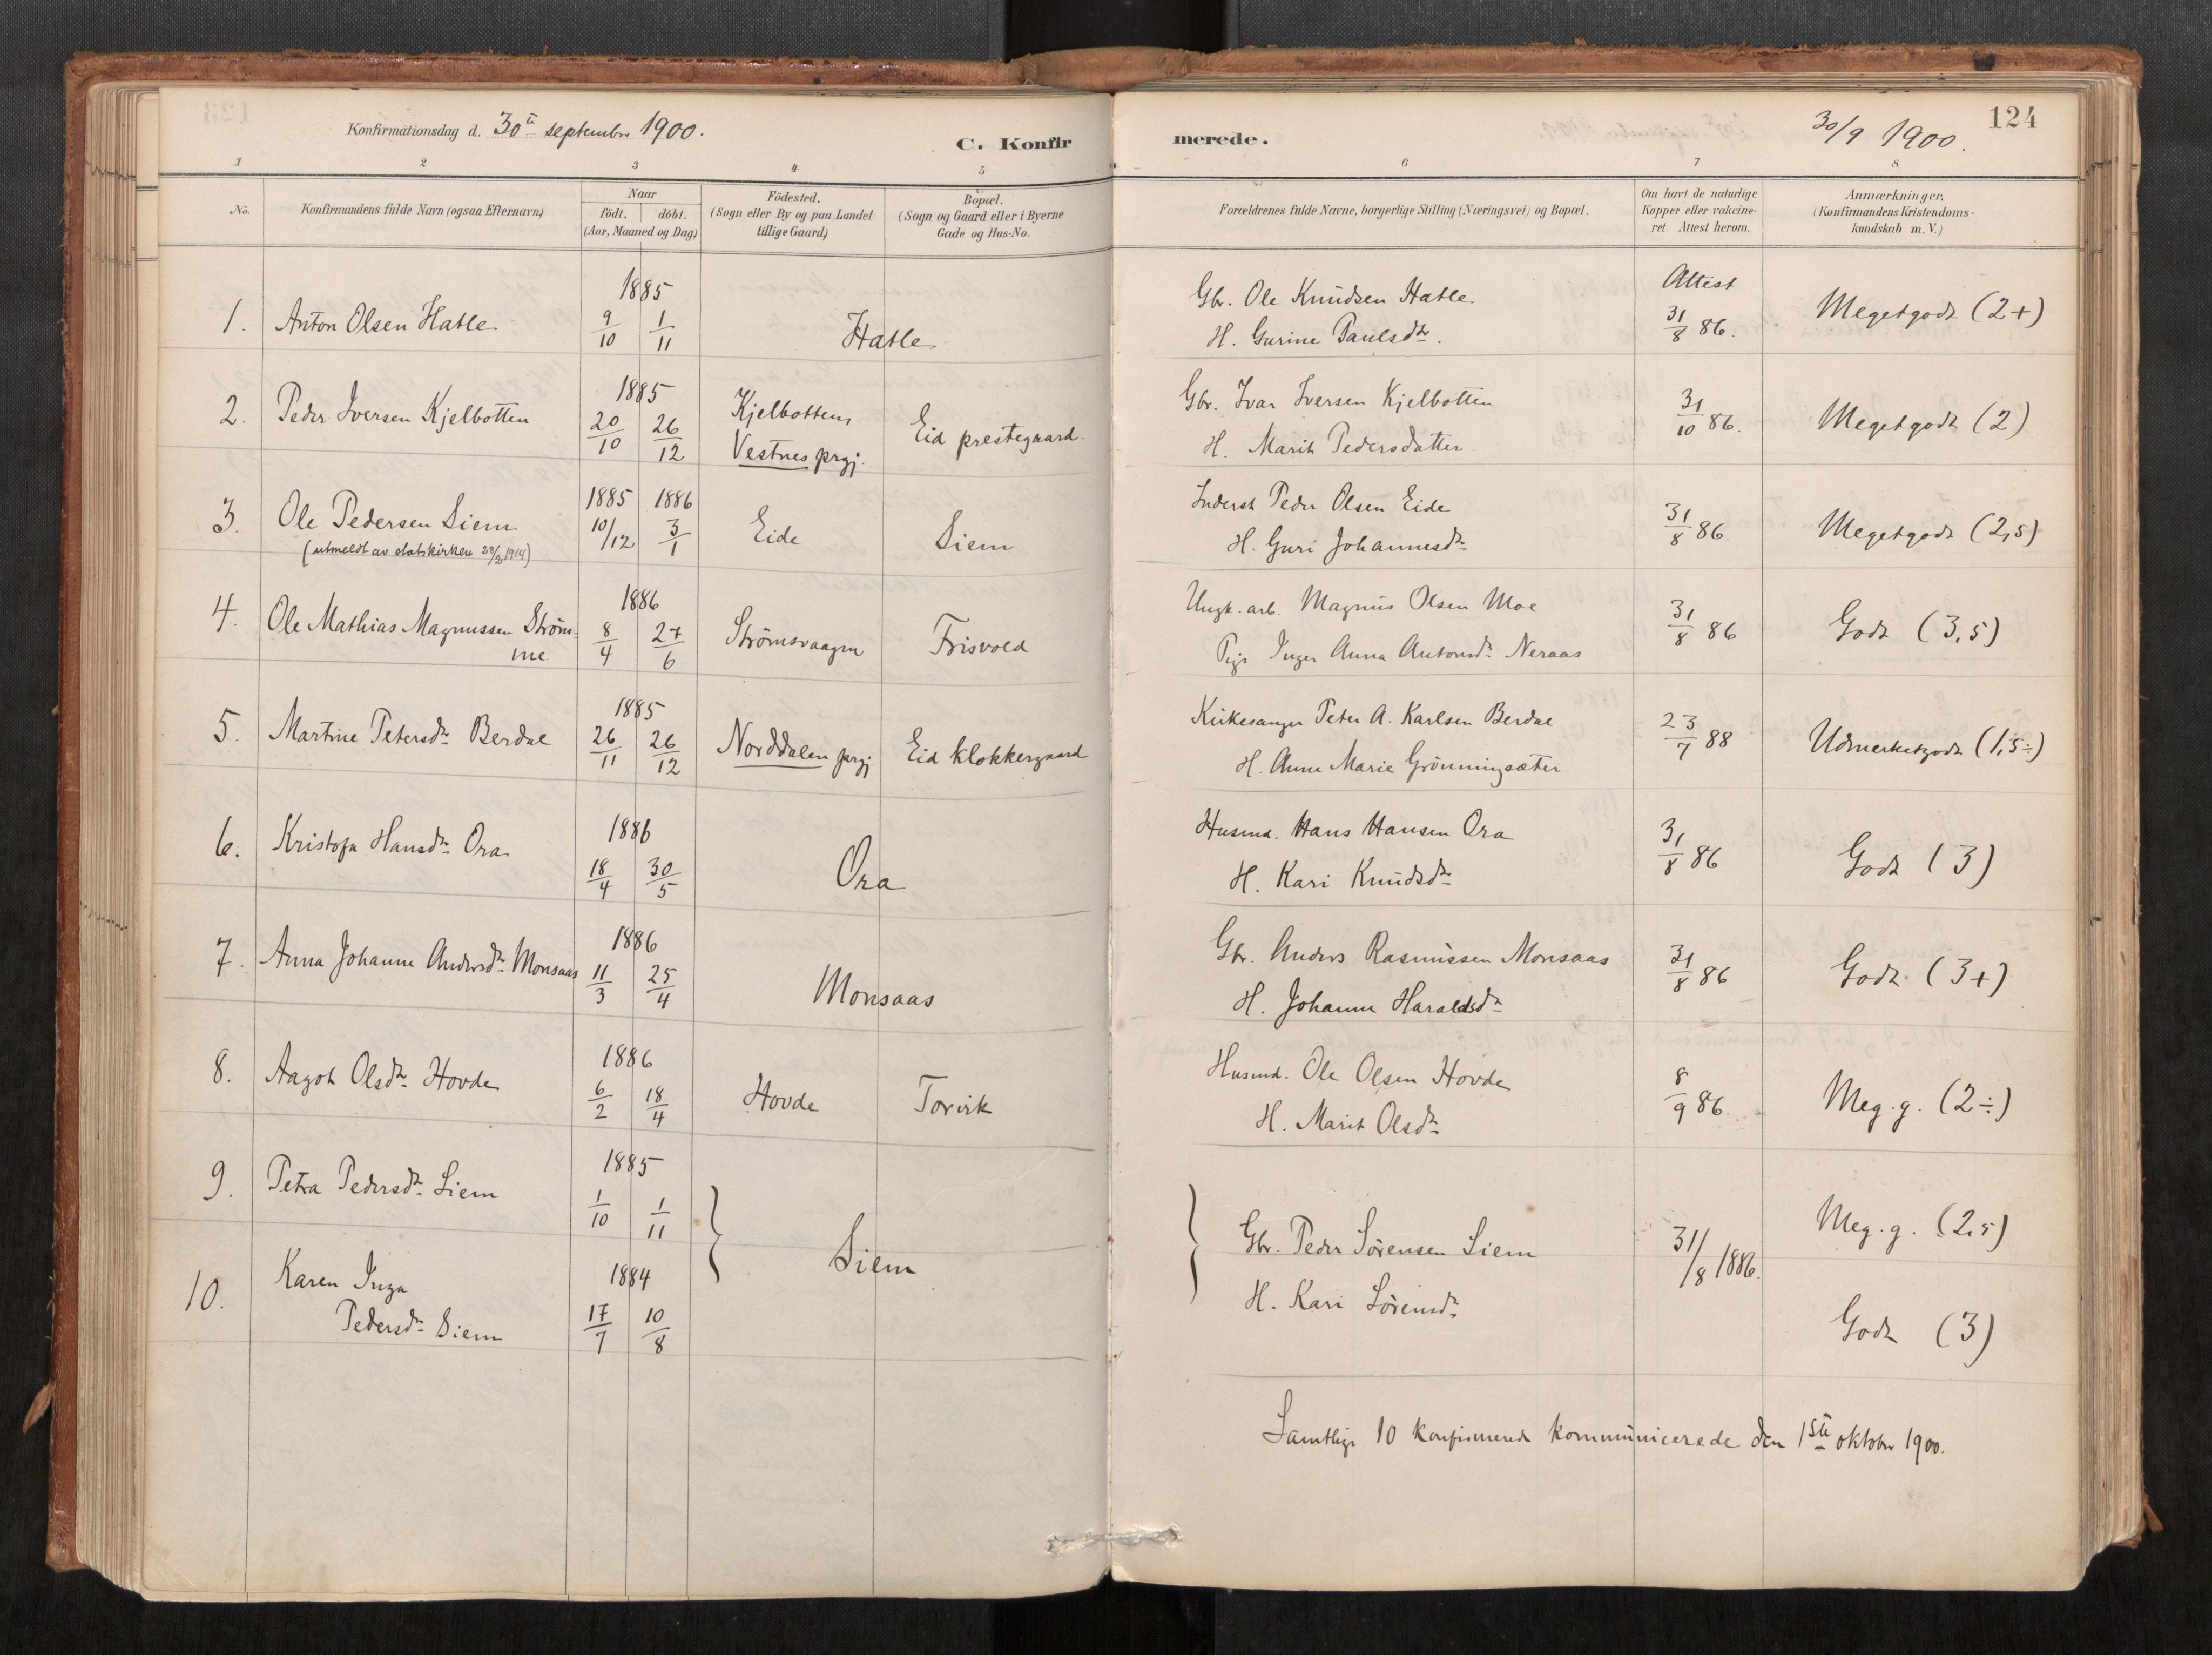 Konfirmationsdag d. 30te septembr. 1900.
C. Konfirmerede.
30/9 1900.
124
1 2 3 4 5 6 7 8
No.
Konfirmandens fulde Navn (ogsaa Efternavn)
Naar
födt. döbt.
(Aar, Maaned og Dag)
Födested.
(Sogn eller By og paa Landet
tillige Gaard)
Bopæl.
(Sogn og Gaard eller i Byerne
Gade og Hus-No.
Forældrenes fulde Navne, borgerlige Stilling (Næringsvei) og Bopæl.
Om havt de naturlige
Kopper eller vakcine-
ret. Attest herom.
Anmærkninger.
(Konfirmandens Kristendoms-
kundskab m. V.)
1. Anton Olsen Hatle
1885
9/10 1/11
Hatle
Gbr. Ole Knudsen Hatle
H. Gurine Paulsdtr.
Attest
31/8 86.
Megetgodt (2+)
2. Peder Iversen Kjelbotten
1885
20/10 26/12
Kjelbotten,
Vestnes prgj.
Eid prestegaard.
Gbr. Ivar Iversen Kjelbotten
H. Marit Pedersdatter
31/10 86.
Megetgodt (2)
3. Ole Pedersen Siem
(utmeldt av statskirken 28/2 1914)
1885 1886
10/12 3/1
Eide
Siem
Inderst Peder Olsen Eide
H. Guri Johannesdtr
31/8 86.
Megetgodt (2,5)
4. Ole Mathias Magnussen Ström-
me
1886
8/4 27/6
Strömsvaagen
Frisvold
Ungk. arb. Magnus Olsen Moe
Pige Inger Anna Antonsdtr Neraas
31/8 86
Godt (3,5)
5. Martine Petersdtr Berdal
1885
26/11 26/12
Norddalen prgj
Eid klokkergaard
Kirkesanger Peter A. Karlsen Berdal
H. Anne Marie Grönningsæter
23/7 88
Udmerketgodt (1,5÷)
6. Kristofa Hansdtr Ora
1886
18/4 30/5
Ora
Husmd. Hans Hansen Ora
H. Kari Knudsdtr
31/8 86
Godt (3)
7. Anna Johanne Andersdtr Monsaas
1886
11/3 25/4
Monsaas
Gbr. Anders Rasmussen Monsaas
H. Johanne Haraldsdtr
31/8 86
Godt (3+)
8. Aagot Olsdtr Hovde
1886
6/2 18/4
Hovde
Torvik
Husmd. Ole Olsen Hovde
H. Marit Olsdtr
8/9 86.
Meg. g. (2÷)
9. Petra Pedersdtr Siem
1885
1/10 1/11
Siem
Gbr. Peder Sörensen Siem
H. Kari Sörensdtr
31/8 1886.
Meg. g. (2,5)
10. Karen Inga
Pedersdtr Siem
1884
17/7 10/8
Godt (3)
Samtlige 10 konfirmerede kommunicerede den 1ste oktober 1900.